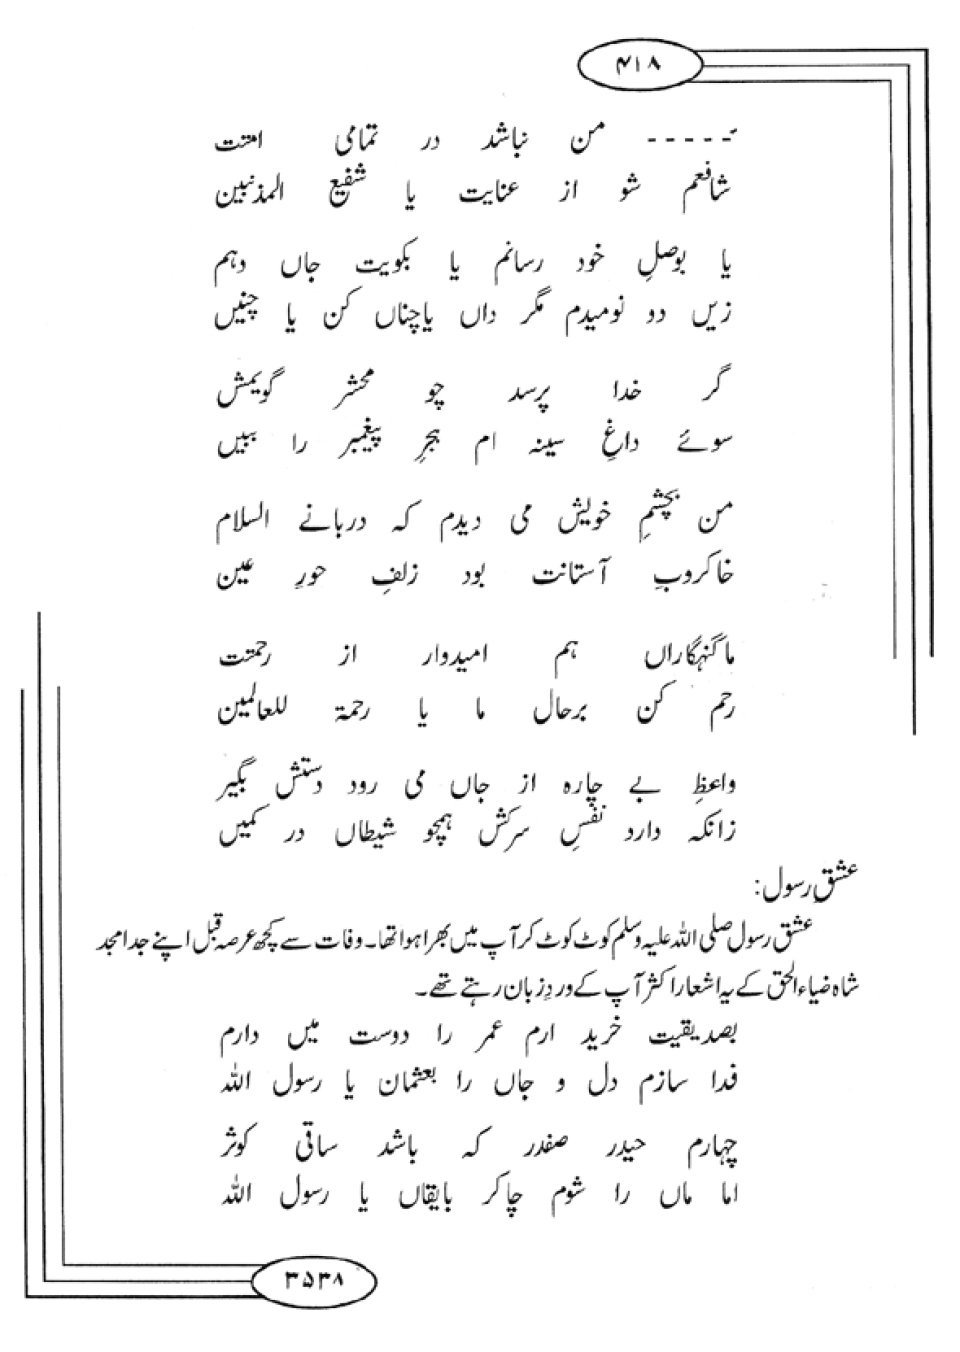 ۴۱۸
۔۔۔۔۔ من نباشد در تمامی امتت
شافعم شو از عنایت یا شفیع المذنبین
یا بوصلِ خود رسانم یا بکویت جاں دہم
زیں دو نومیدم مگر داں یاچناں کن یا چنیں
گر خدا پرسد چو محشر گویمش
سوئے داغِ سینہ ام ہجرِ پیغمبر را ببیں
من بچشمِ خویش می دیدم کہ دربانے السلام
خاکروبِ آستانت بود زلفِ حورِ عین
ما گنہگاراں ہم امیدوار از رحمتت
رحم کن برحال ما یا رحمۃ للعالمین
واعظِ بے چارہ از جاں می رود دستش بگیر
زانکہ دارد نفسِ سرکش ہمچو شیطاں در کمیں
عشقِ رسول:
عشق رسول صلی اللہ علیہ وسلم کوٹ کوٹ کر آپ میں بھرا ہوا تھا۔ وفات سے کچھ عرصہ قبل اپنے جد امجد
شاہ ضیاء الحق کے یہ اشعار اکثر آپ کے وردِ زبان رہتے تھے۔
بصدیقیت خرید ارم عمر را دوست میں دارم
فدا سازم دل و جاں را بعثمان یا رسول اللہ
چہارم حیدر صفدر کہ باشد ساقی کوثر
اما ماں را شوم چاکر بایقاں یا رسول اللہ
۳۵۳۸